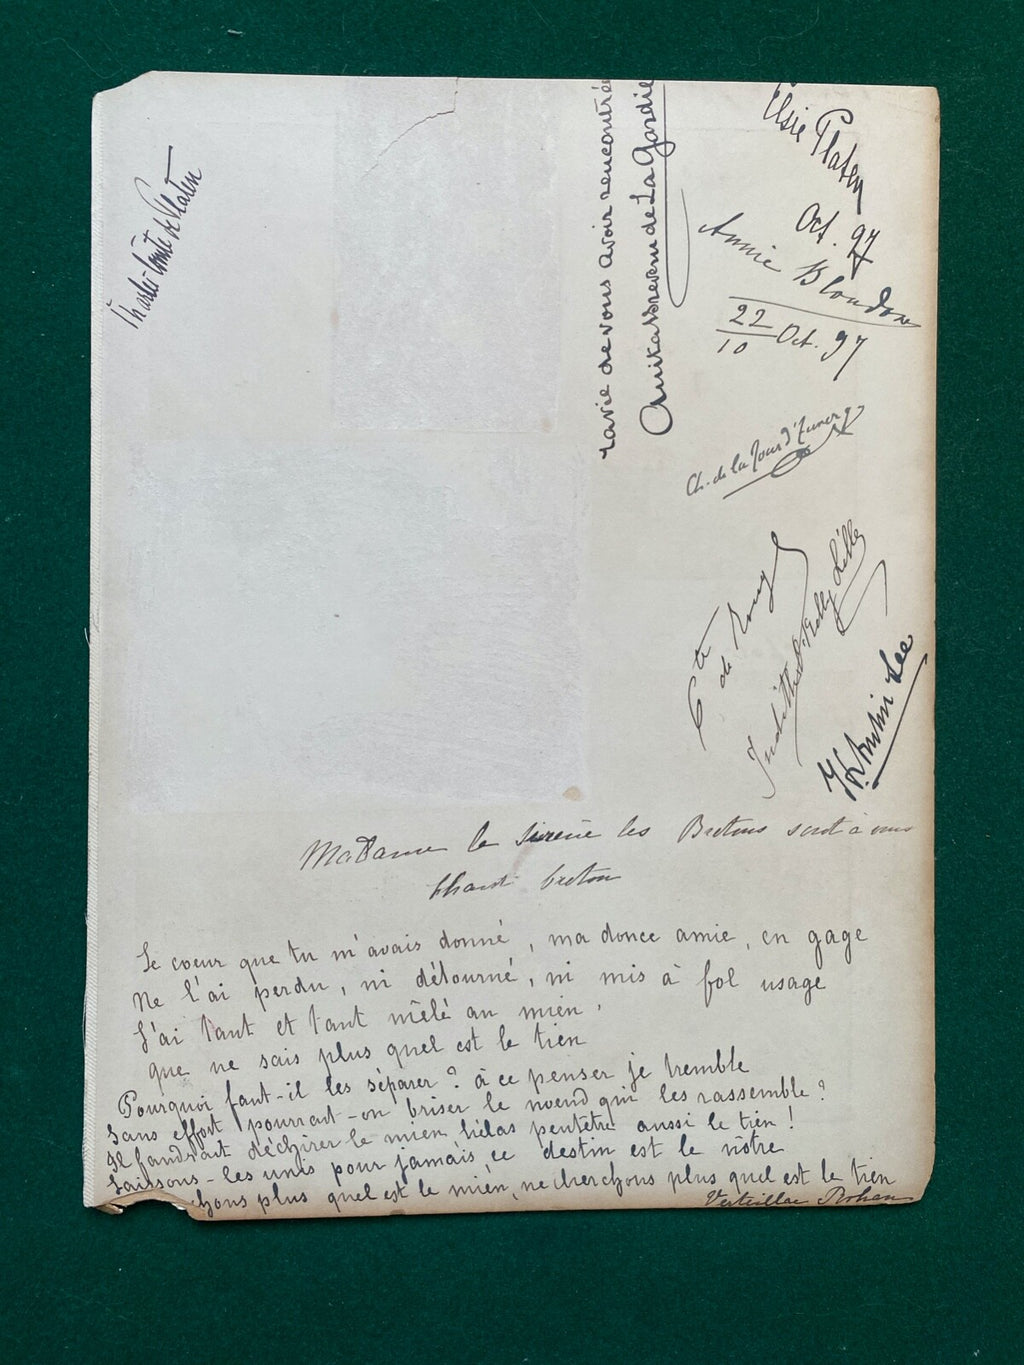 Charles Comte de Platen
ravie de vous avoir rencontrée
Anika de La Gardie
Elsie Platen
Oct. 97
Annie Blondon
22/10 Oct. 97
Ch. de la Tour d'Auverg
Cte de Rougé
Judith Kelly Lilly
Austin Lee
Madame la Sirène les Bretons sont à vous
Chant breton
Le coeur que tu m'avais donné, ma douce amie, en gage
Ne l'ai perdu, ni détourné, ni mis à fol usage
L'ai tant et tant mêlé au mien,
que ne sais plus quel est le tien
Pourquoi faut-il les séparer? à ce penser je tremble
Sans effort pourrait-on briser le noeud qui les rassemble?
Il faudrait déchirer le mien, hélas peutêtre aussi le tien!
Laissons-les unis pour jamais, ce destin est le nôtre
chons plus quel est le mien, ne cherchons plus quel est le tien
Verteillac Rohan